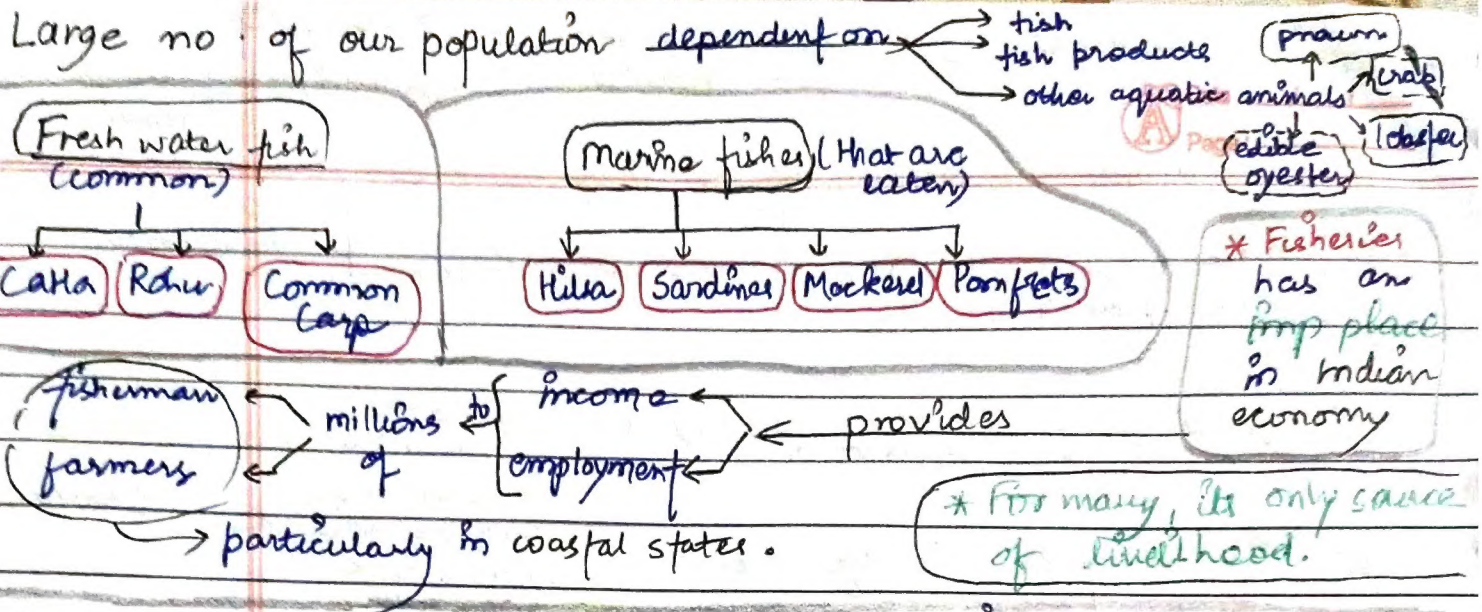 Large no. of our population dependent on
fish
fish products
other aquatic animals
prawn
crab
lobster
edible
oyester
Fresh water fish
(common)
Catla Rohu Common
Carp
Marine fishes (that are
eaten)
Hilsa Sardines Mackerel Pomfrets
* Fisheries
has an
imp place
in Indian
economy
provides
income
employment
to
millions
of
fisherman
farmers
particularly in coastal states.
* For many, its only source
of livelihood.